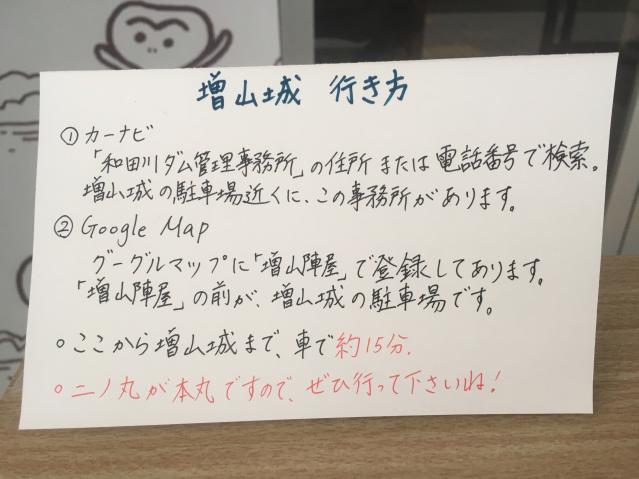 増山城 行き方
① カーナビ
「和田川ダム管理事務所」の住所 または 電話番号で検索。
増山城の駐車場近くに、この事務所があります。
② Google Map
グーグルマップに「増山陣屋」で登録してあります。
「増山陣屋」の前が、増山城の駐車場です。
○ ここから増山城まで、車で約15分.
○ 二ノ丸が本丸ですので、ぜひ行って下さいね！